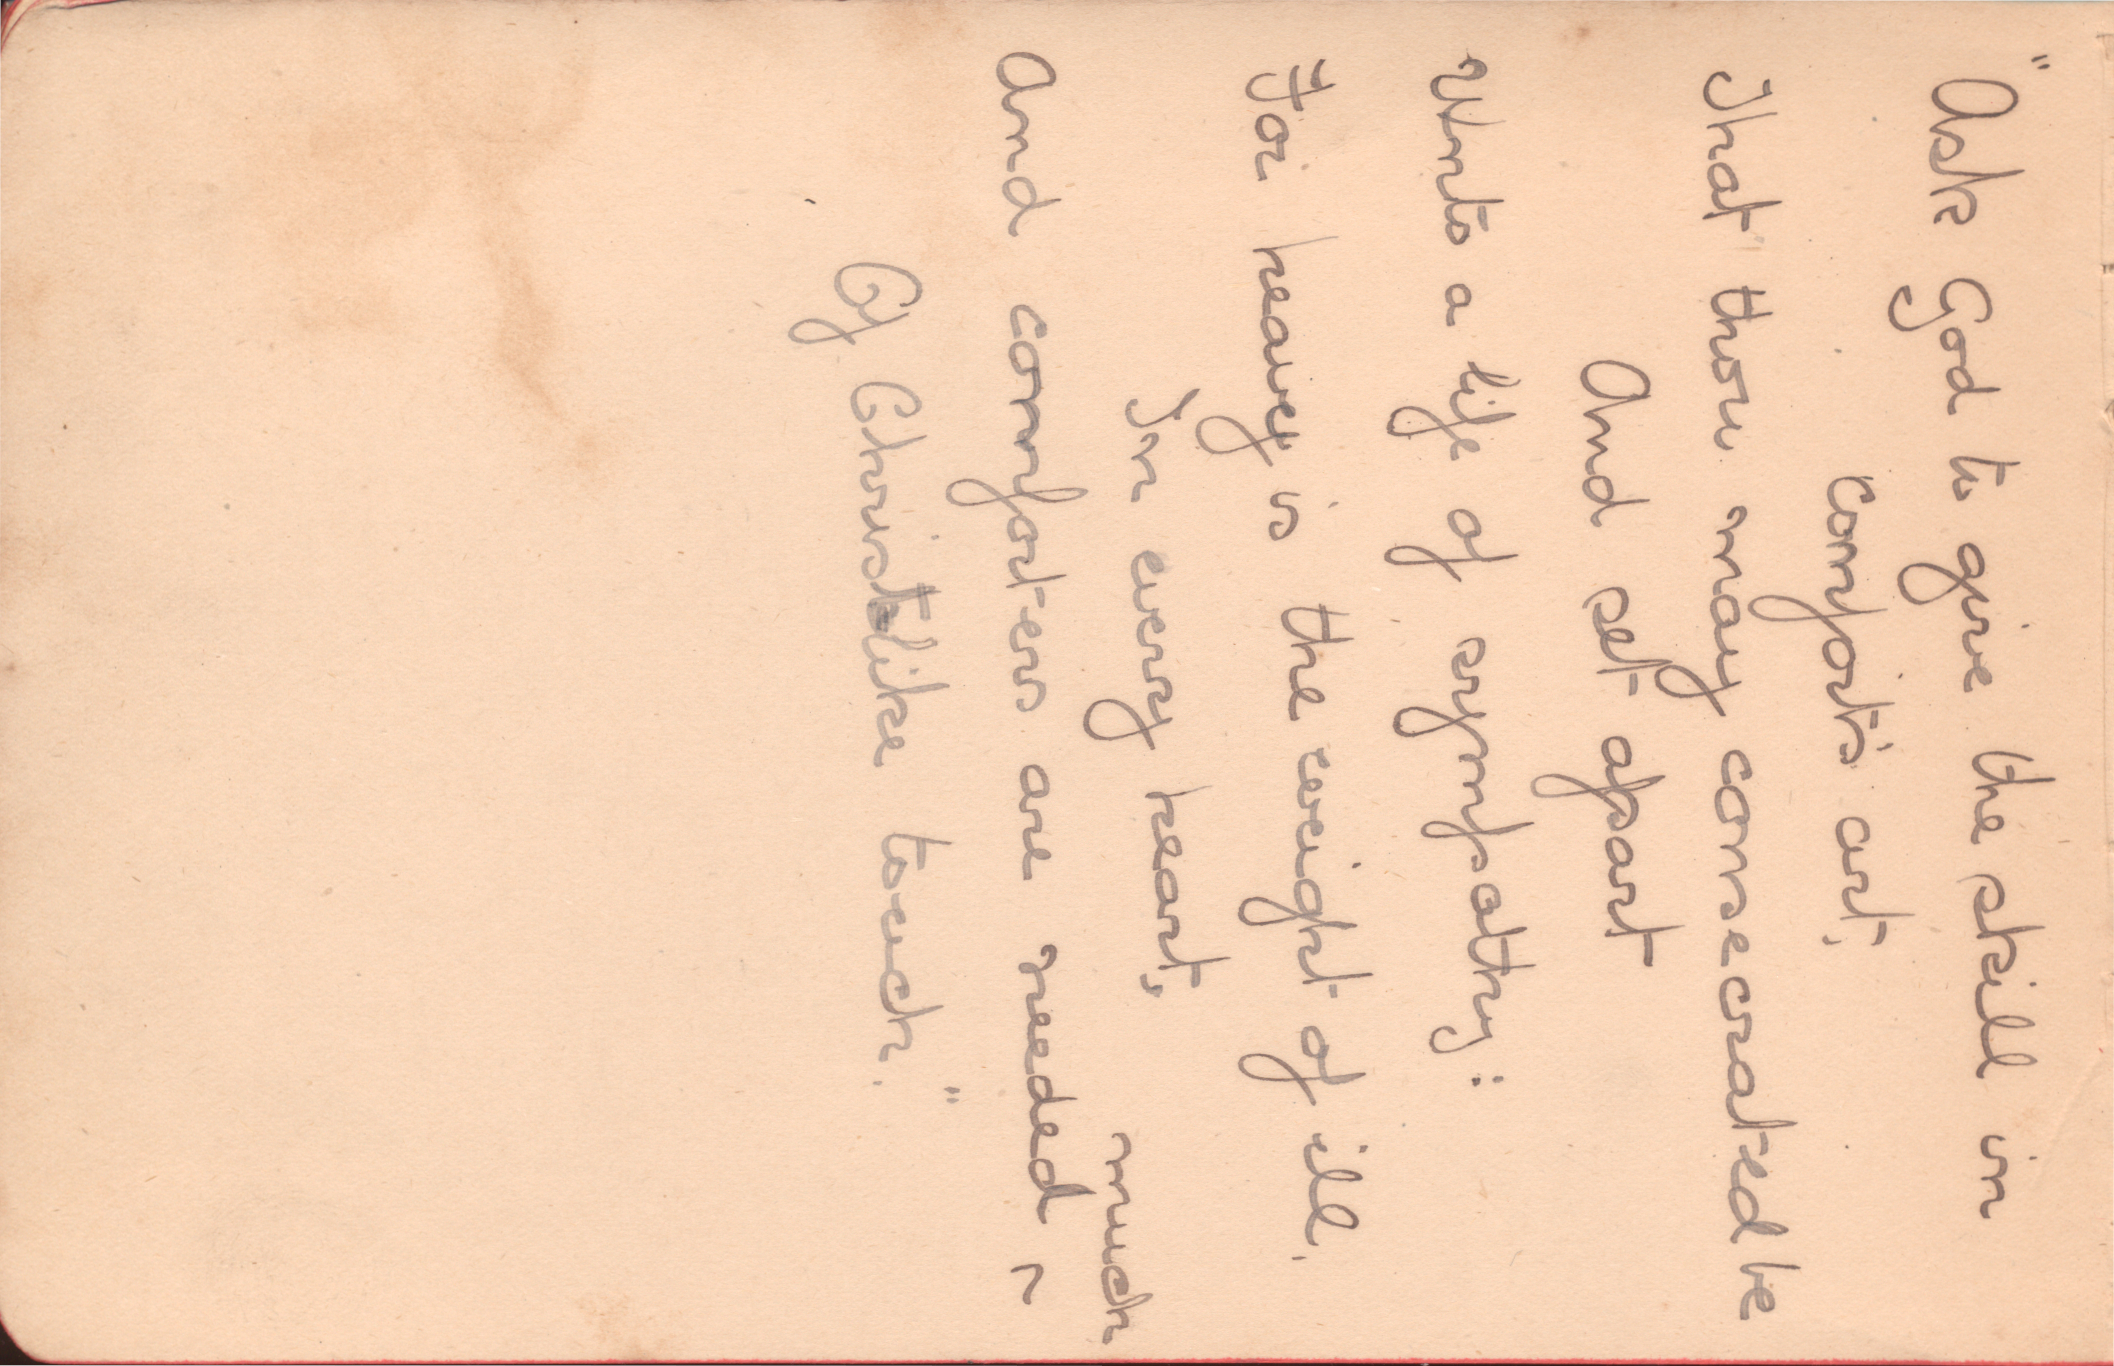 "Ask God to give the skill in
comfort's art,
That thou may consecrated be
And set apart
Unto a life of sympathy:
For heavy is the weight of ill
In every heart,
And comforters are needed
much
Of Christlike touch."